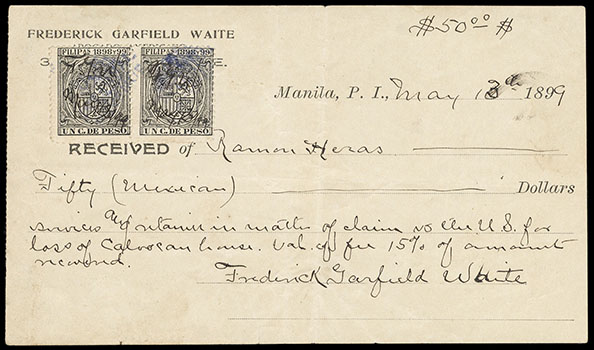 $50.00 $
FREDERICK GARFIELD WAITE
ABOGADO AMERICANO
FILIPAS 1898 Y 99 FILIPAS 1898 Y 99
UN C. DE PESO UN C. DE PESO
Manila, P. I., May 13 1899
RECEIVED of Ramon Heras
Fifty (Mexican) Dollars
services of retainer in matter of claim vs the U.S. for
loss of Caloocan house. Val. of fee 15% of amount
recovered.
Frederick Garfield Waite